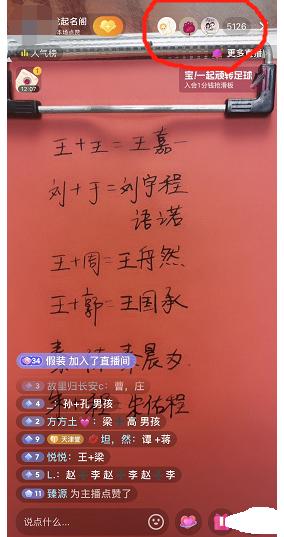 起名阁
本场点赞
5126
人气榜
更多直播
12:07
宝!一起顽转足球
入会1分钱抢滑板
王+王=王嘉一
刘+于=刘宇程
语诺
王+周=王舟然
王+郭=王国承
34 假装 加入了直播间
3 故里归长安c：曹，庄
4 ：孙+孔 男孩
朱佑程
2 方方土：梁 高 男孩
9 天津堂 坦，然：谭+蒋
7 悦悦：王+梁
5 L.：赵 李赵 李赵 李
11 臻源 为主播点赞了
说点什么...